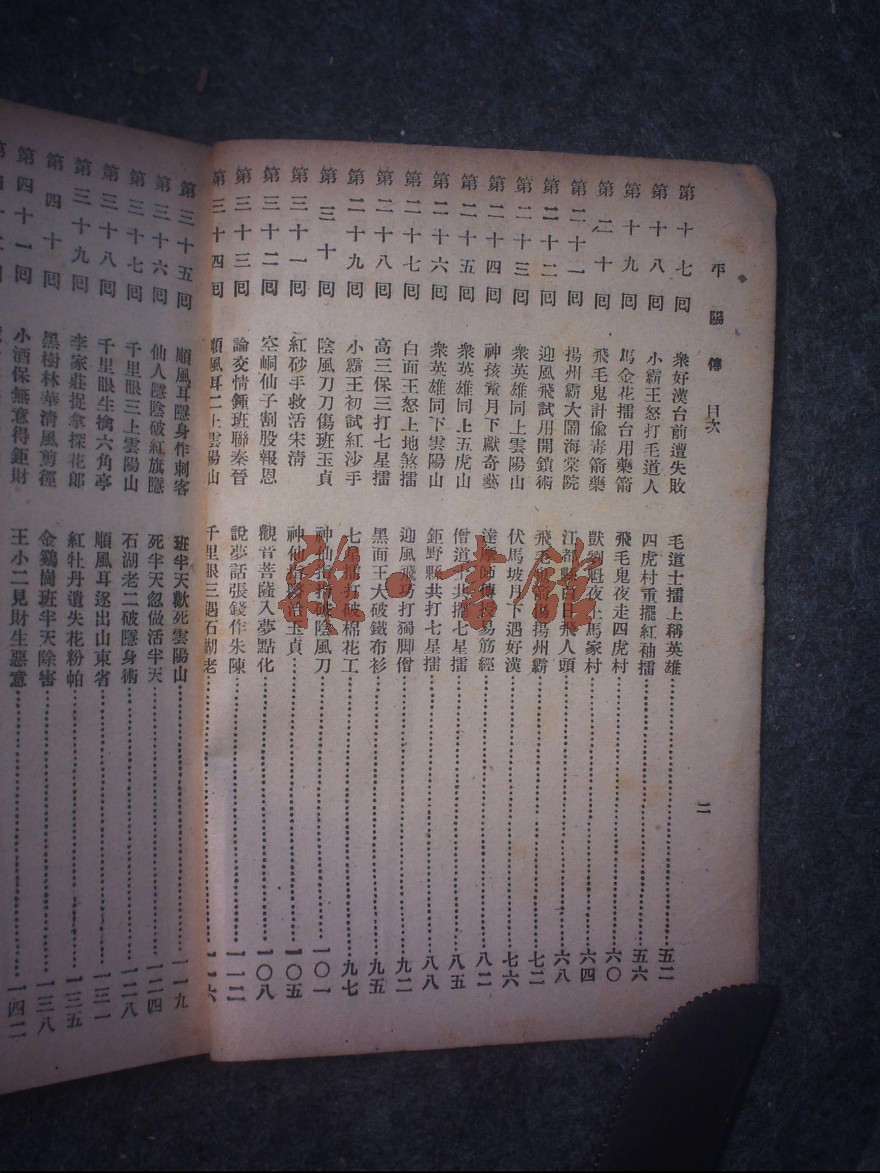 平陽傳 目次 二
第十七回 衆好漢台前遭失敗 毛道士擂上稱英雄 五二
第十八回 小霸王怒打毛道人 四虎村重擺紅袖擂 五六
第十九回 馬金花擂台用藥箭 飛毛鬼夜走四虎村 六〇
第二十回 飛毛鬼計偷毒箭藥 獸劉魁夜上馬家村 六四
第二十一回 揚州霸大鬧海棠院 江都縣白日飛人頭 六八
第二十二回 迎風飛試用開鎖術 飛毛 揚州霸 七二
第二十三回 衆英雄同上雲陽山 伏馬坡月下遇好漢 七六
第二十四回 神孩童月下獻奇藝 達摩師傳授易筋經 八二
第二十五回 衆英雄同上五虎山 僧道士共擺七星擂 八五
第二十六回 衆英雄同下雲陽山 鉅野縣共打七星擂 八八
第二十七回 白面王怒上地煞擂 迎風飛巧打獨脚僧 九二
第二十八回 高三保三打七星擂 黑面王大破鐵布衫 九五
第二十九回 小霸王初試紅沙手 七星擂打破棉花工 九七
第三十回 陰風刀刀傷班玉貞 神仙 破陰風刀 一〇一
第三十一回 紅砂手救活宋清 神仙 治玉貞 一〇五
第三十二回 空峒仙子割股報恩 觀音菩薩入夢點化 一〇八
第三十三回 論交情鍾班聯秦晉 說夢話張錢作朱陳 一一二
第三十四回 順風耳二上雲陽山 千里眼三遇石湖老 一一六
第三十五回 順風耳隱身作刺客 班半天歡死雲陽山 一一九
第三十六回 仙人隱陰破紅旗隱 死半天忽做活半天 一二四
第三十七回 千里眼三上雲陽山 石湖老二破隱身術 一二八
第三十八回 千里眼生擒六角亭 順風耳逐出山東省 一三一
第三十九回 李家莊捉拿探花郎 紅牡丹遺失花粉帕 一三五
第四十回 黑樹林華清風剪徑 金鷄崗班半天除害 一三八
第四十一回 小酒保無意得鉅財 王小二見財生惡意 一四二
雜·書館